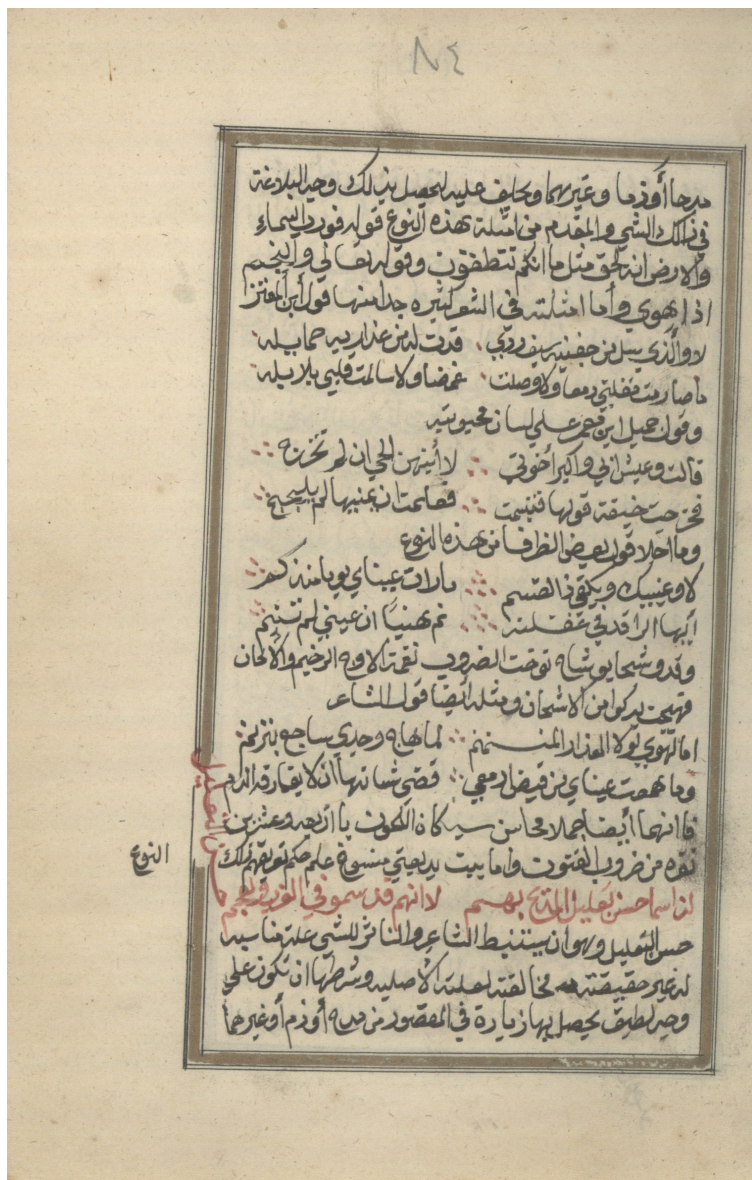 ٨٤
مدحا أو ذما وغيرهما ويحلف عليه ليحصل بذلك وجه البلاغة
في ذلك الشي والمقدم من امثلة بهذه النوع قوله فورد السماء
والارض انه لحق مثل ما انكم تنطقون وقوله تعالي والنجم
اذا هوي وأما امثلته في الشعر كثيره جدا منها قول أبن المعتز
لا والذي سل من جفنيه سيف ردي قدت له من عذاريه حمايله
ما صارمت مقلتي دمعا ولا وصلت غمضا ولا سالمت قلبي بلابله
وقول جميل ابن معمر علي لسان محبوبته
قالت وعيش ابي واكبر أخوتي لا أنبهن الحي ان لم تخرج
فخرجت خيفة قولها فتبسمت فعلمت ان يمينها لم يلجج
وما احلا قول بعض الظرفا من هذه النوع
لا وعينيك ويكفي ذا القسم ما رات عيناي يوما منذ كم
أيها الراقد في غفلته نم هنيا ان عيني لم تنم
وقد وشحا بوشاه توخت الضروب نغمة الاوه الرخيم والالحان
فهيجت بدكوا من الاشجان ومثله أيضا قول الشاعر
اما الهوي لولا العذار المنمنم لما هاج وجدي ساجع يترنم
وما همعت عيناي من فيض ادمعي قضي شانها ان لا يفارقه الدم
فا انهما أيضا جملا محاسن سبكاه اللحون با أربعه وعشرين
نقره من ضروب الفنون واما بيت بديعتي منسوخة علم حكم تعريفهم ذلك
لذا سما حسن تعليل المديح بهم لا انهم قد سموفي العرب والعجم
حسن التعليل
النوع
حسن التعليل وهو ان يستنبط الشاعر والناثر للشي علة مناسبه
له غير حقيقته مخالفته لعلته الاصليه وشرطها ان تكون علي
وجه لطيف يحصل بها زيادة في المقصود من مدح أو ذم أو غيرها